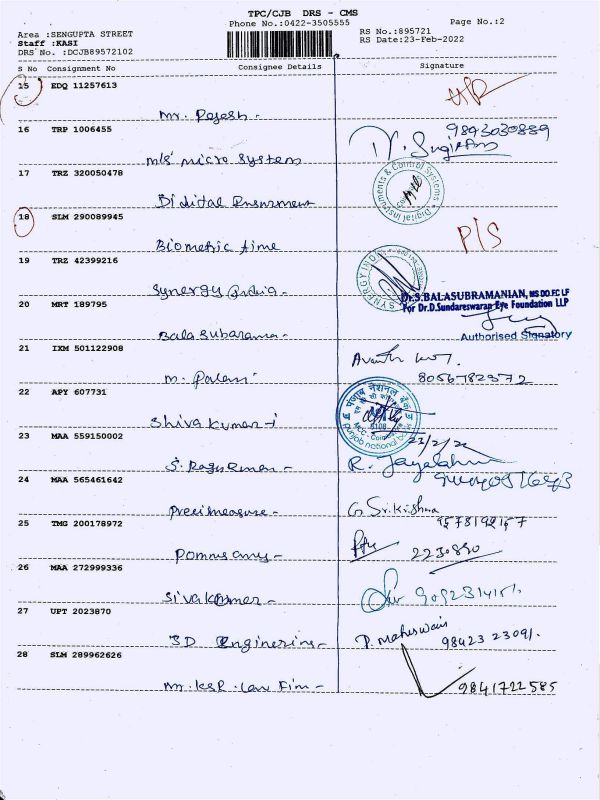 TPC/CJB DRS - CMS
Phone No.:0422-3505555
Page No.:2
Area :SENGUPTA STREET
RS No.:895721
Staff :KASI
RS Date:23-Feb-2022
DRS No. :DCJB89572102
S No Consignment No Consignee Details Signature
15 EDQ 11257613
Mr. Rajesh -
16 TRP 1006455
9893030889
M/s Micro System
17 TRZ 320050478
Digital Instruments & Control Systems
18 SLM 290089945
P/S
Biometric time
19 TRZ 42399216
SYNERGY INDIA
Synergy India -
Dr.S.BALASUBRAMANIAN, MS DO.FC LF
For Dr.D.Sundareswaran Eye Foundation LLP
20 MRT 189795
Authorised Signatory
Balasubarama -
21 IXM 501122908
M. Palani
8056782372
22 APY 607731
पंजाब नैशनल बैंक
punjab national bank
Shiva kumar -
23/2/22
23 MAA 559150002
R. Jayalakshmi
24 MAA 565461642
Precimeasure -
G Sri Krishna
25 TMG 200178972
Ponnusamy -
2230890
26 MAA 272999336
Sivakumar -
27 UPT 2023870
P. Maheswari
3D Engineering -
98423 23091.
28 SLM 289962626
Mr. KSR. Law Fim -
9841722585